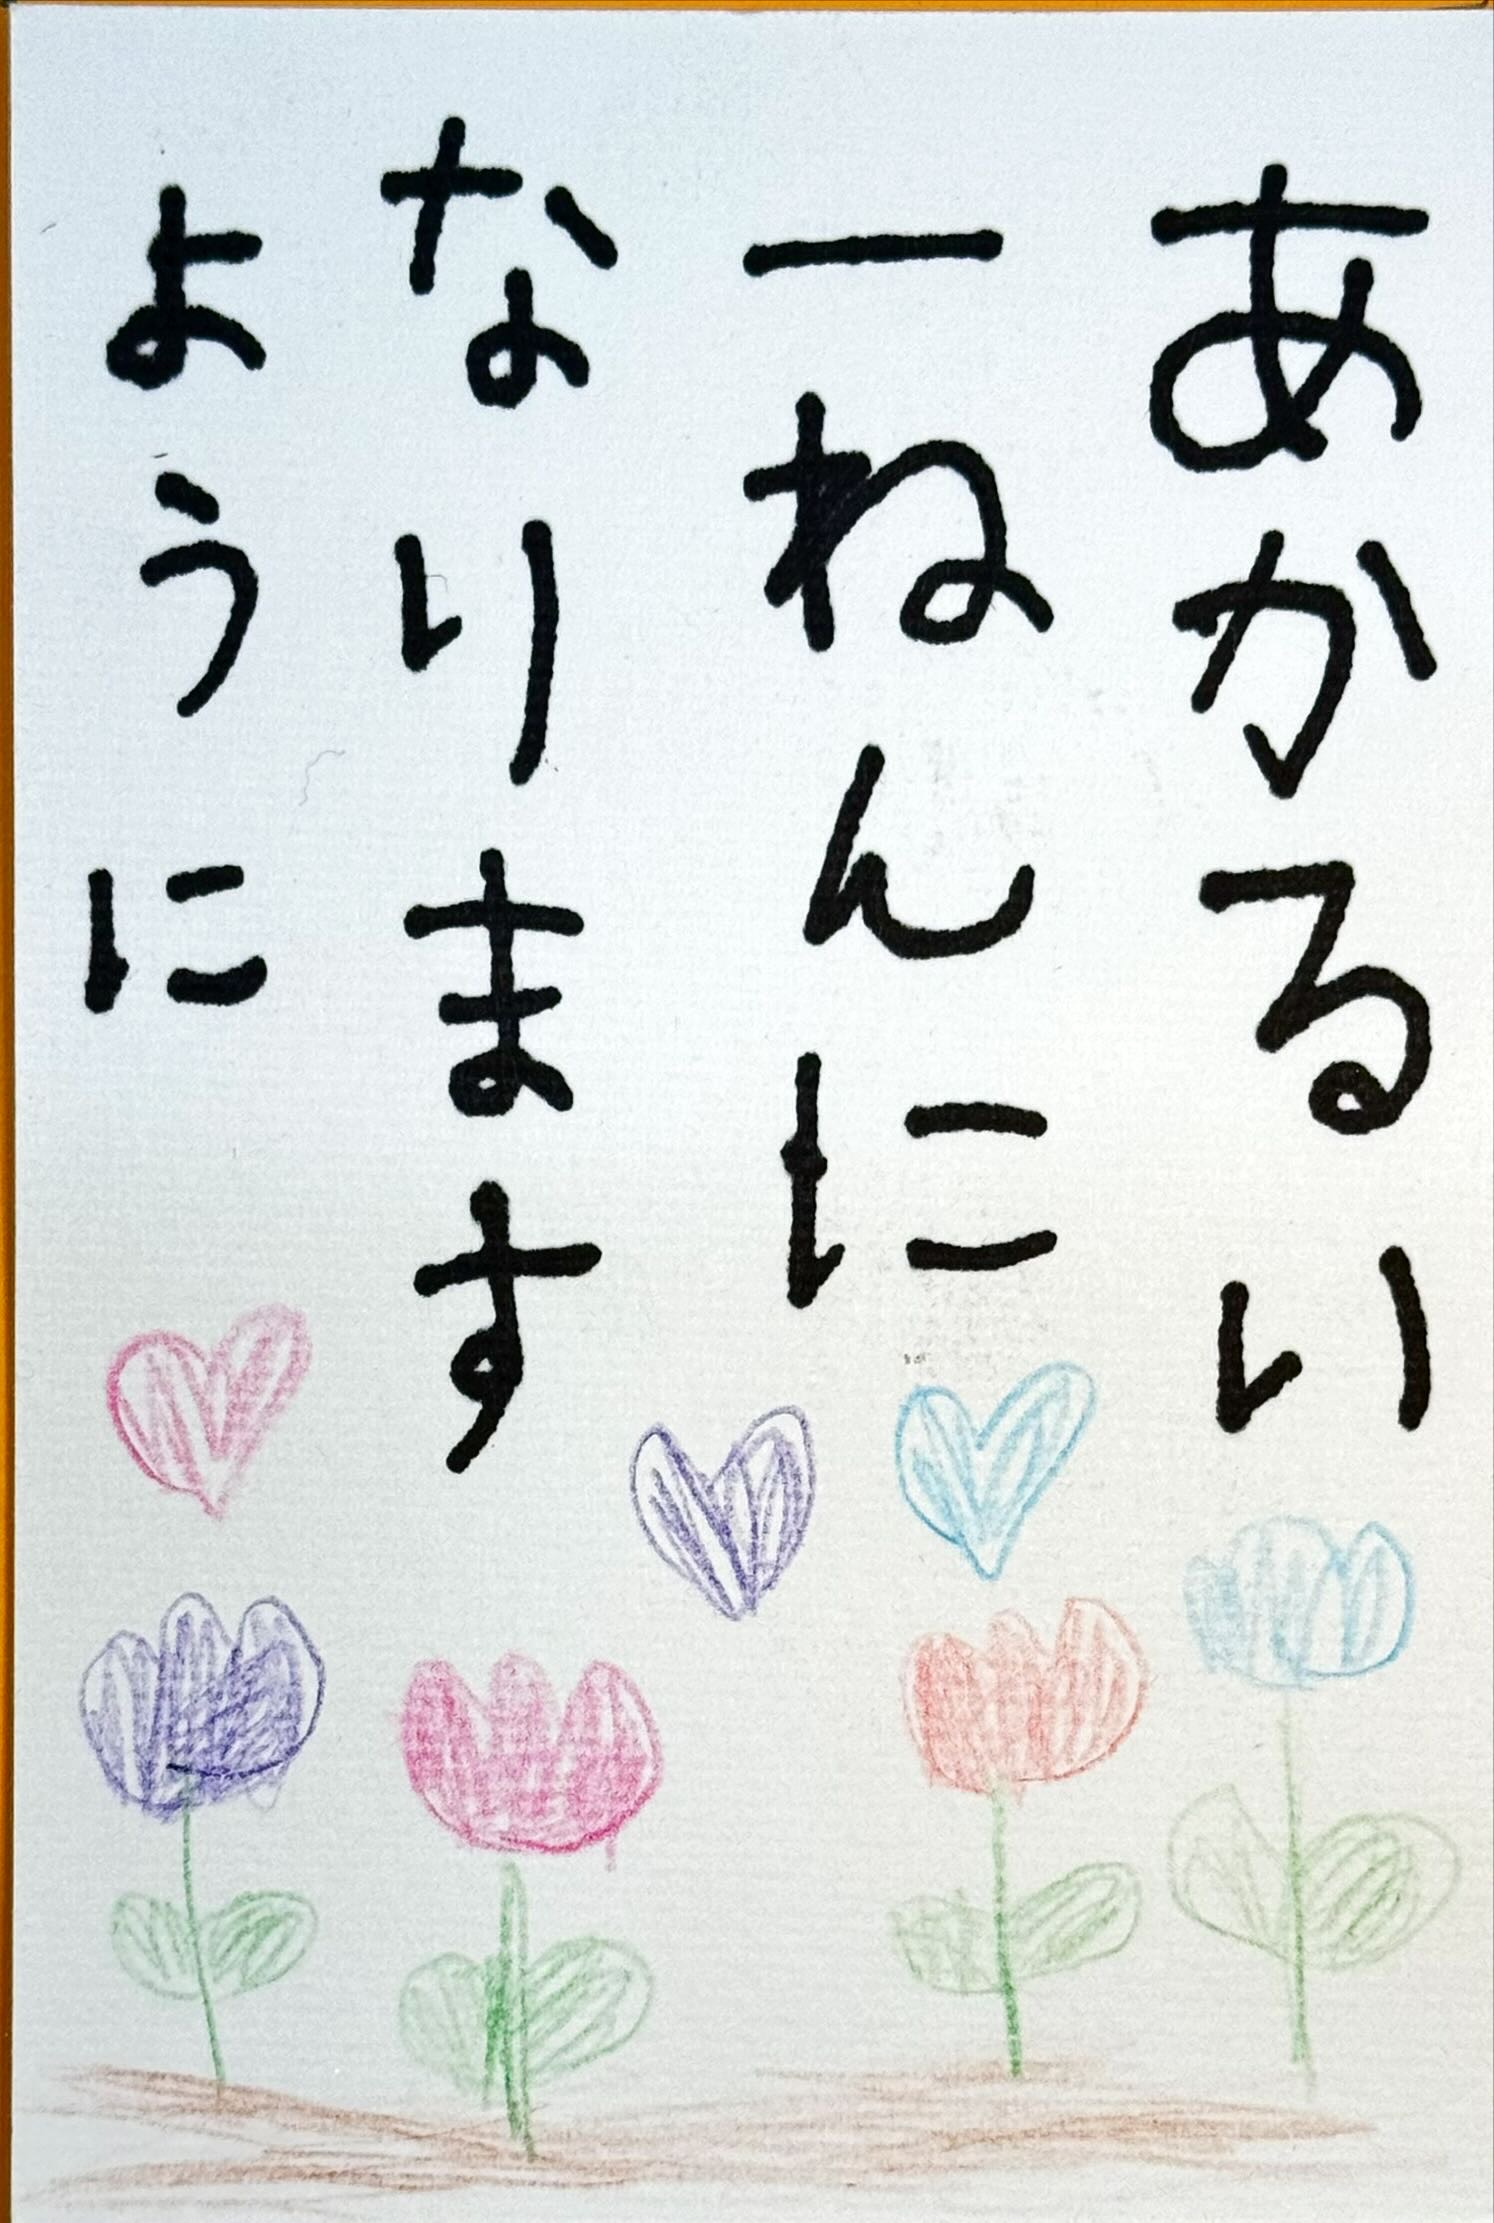 あかるい
一ねんに
なります
ように